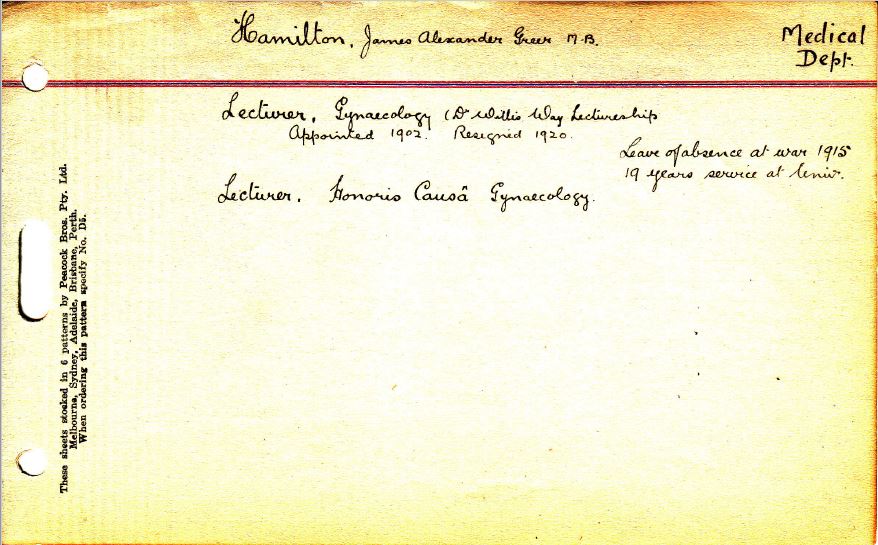 Hamilton, James Alexander Greer M.B.
Medical
Dept.
Lecturer, Gynaecology (Dr Willis Way Lectureship
Appointed 1902. Resigned 1920.
Leave of absence at war 1915
19 years service at Univ.
Lecturer, Honoris Causâ Gynaecology.
These sheets stocked in 6 patterns by Peacock Bros. Pty. Ltd.
Melbourne, Sydney, Adelaide, Brisbane, Perth.
When ordering this pattern specify No. D5.